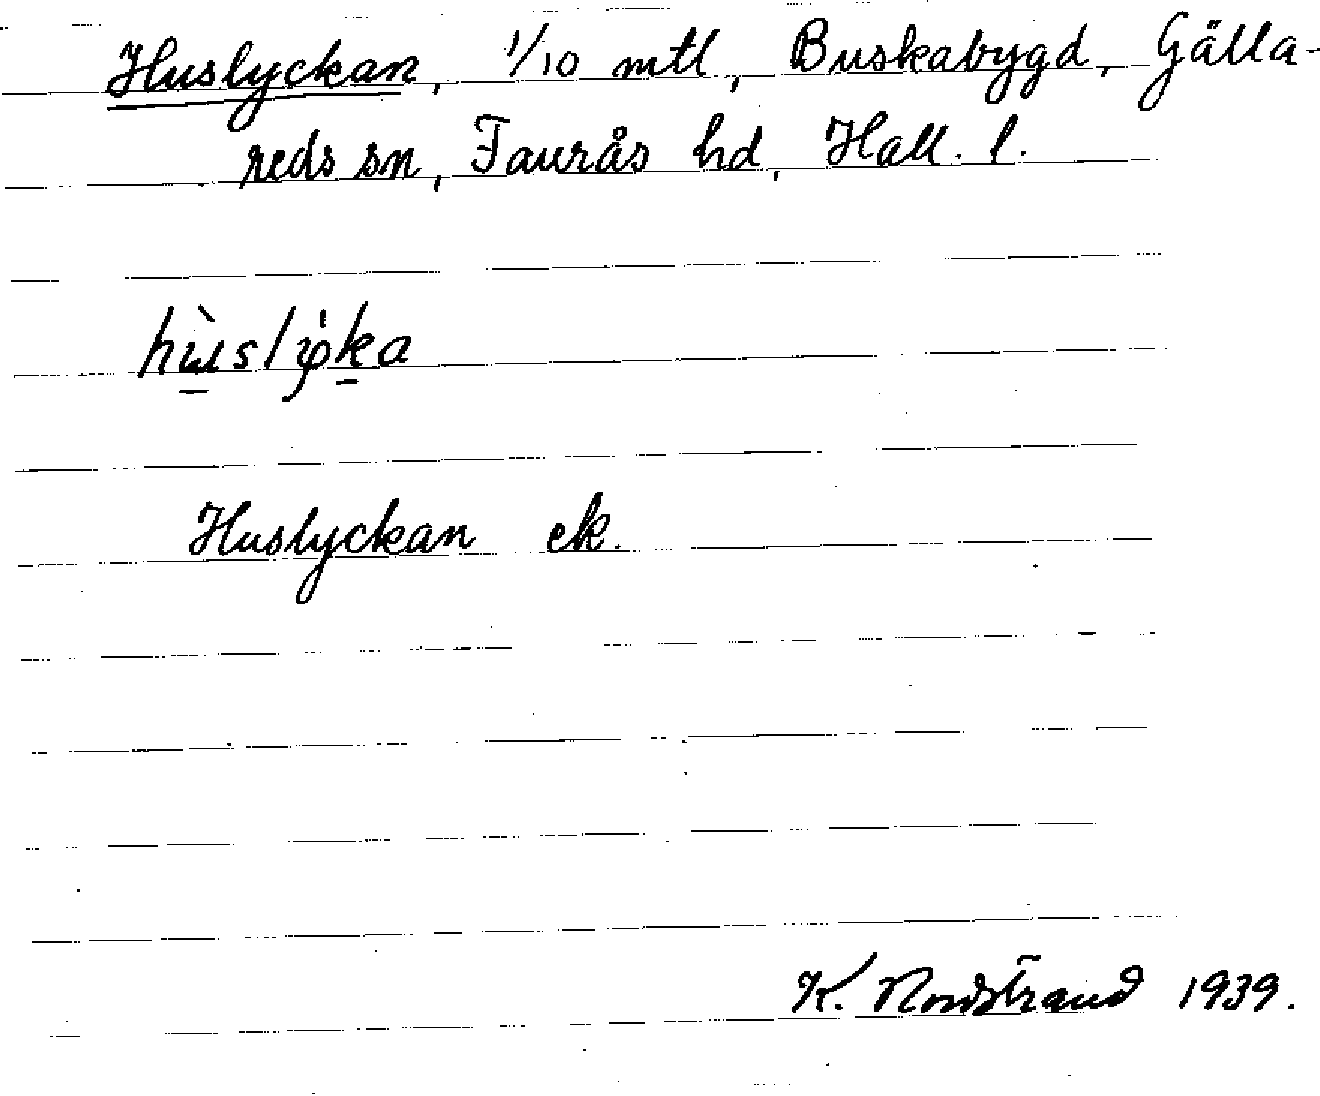 Huslyckan, 1/10 mtl, Buskabygd, Gälla-
reds sn, Faurås hd, Hall. l.
hùslyka
Huslyckan ek.
K. Nordstrand 1939.